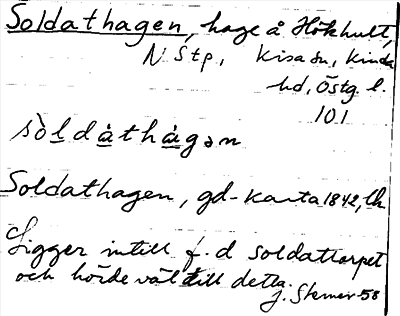 Soldathagen, hage å Hökhult,
N Stp, Kisa sn, Kinda
hd, Östg l.
101
sòldàthàgən
Soldathagen, gd-karta 1842, Ch
Ligger intill f.d soldattorpet
och hörde väl till detta.
J. Stemer-58